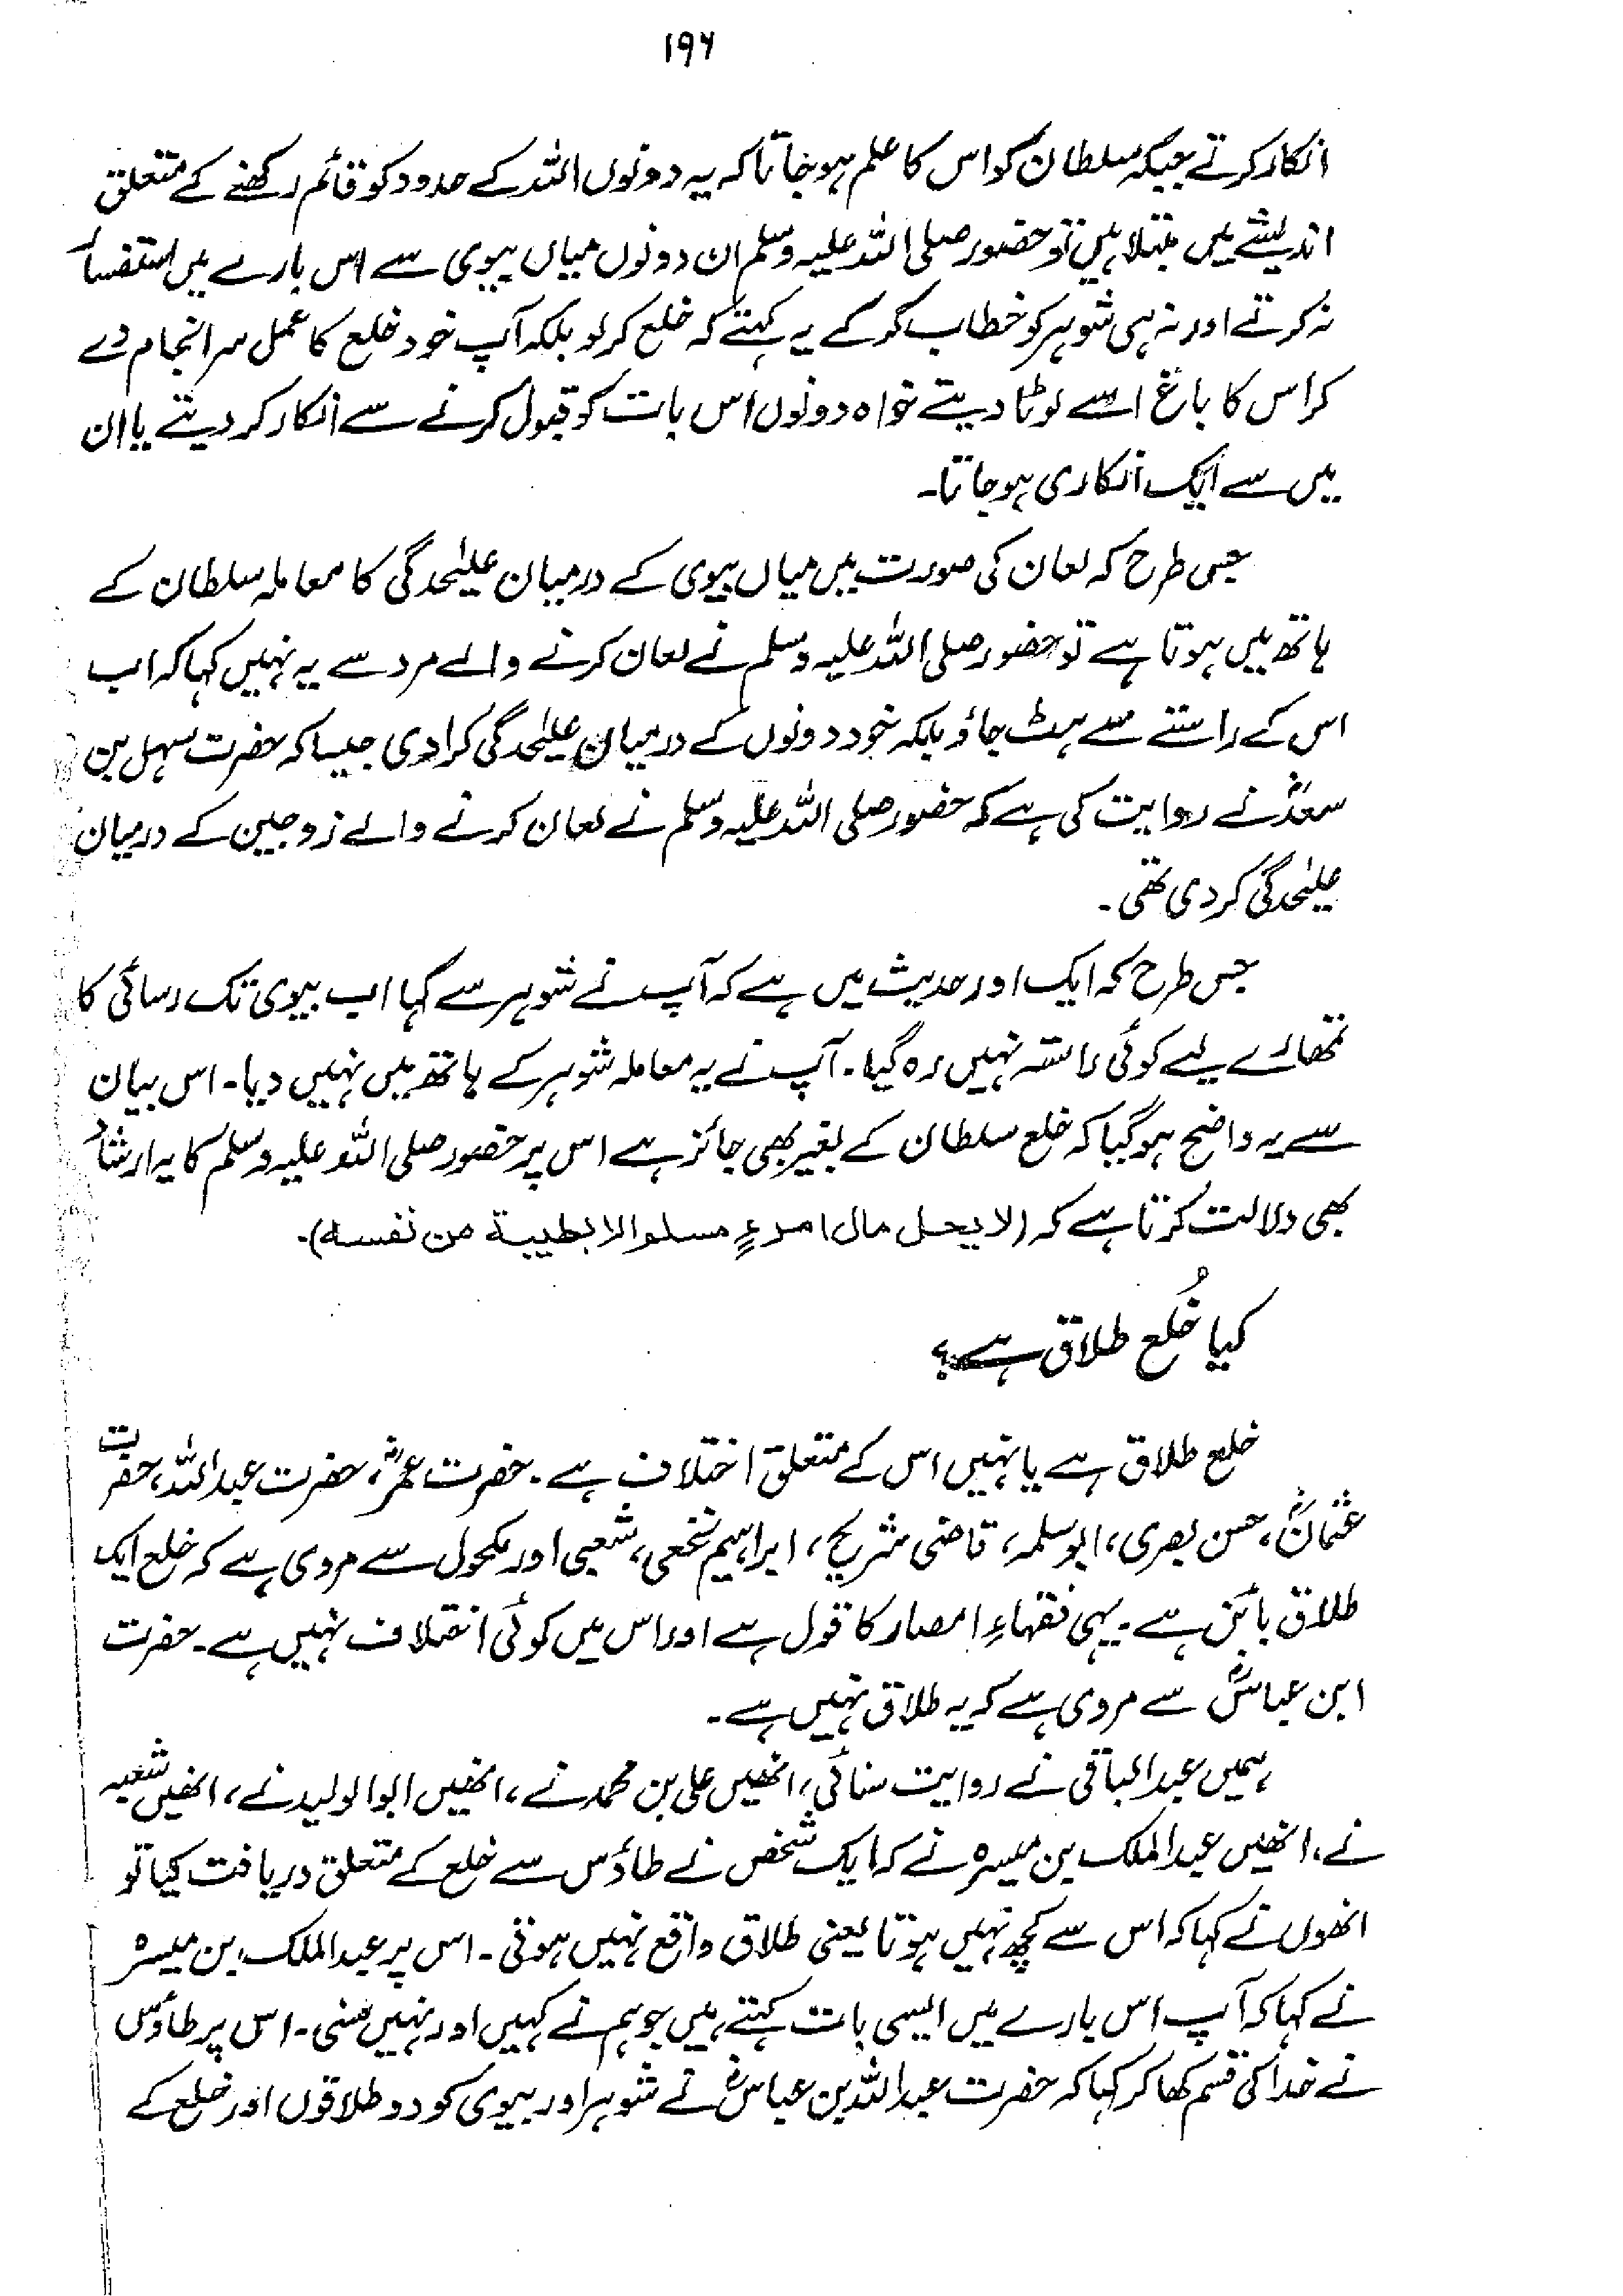 ۱۹۶
انکار کرتے جبکہ سلطان کو اس کا علم ہو جاتا کہ یہ دونوں اللہ کے حدود کو قائم رکھنے کے متعلق
اندیشے میں مبتلا ہیں تو حضور صلی اللہ علیہ وسلم ان دونوں میاں بیوی سے اس بارے میں استفسار
نہ کرتے اور نہ ہی شوہر کو خطاب کر کے یہ کہتے کہ خلع کر لو بلکہ آپ خود خلع کا عمل سرانجام دے
کر اس کا باغ اسے لوٹا دیتے خواہ دونوں اس بات کو قبول کرنے سے انکار کر دیتے یا ان
میں سے ایک انکاری ہو جاتا۔
جس طرح کہ لعان کی صورت میں میاں بیوی کے درمیان علیٰحدگی کا معاملہ سلطان کے
ہاتھ میں ہوتا ہے تو حضور صلی اللہ علیہ وسلم نے لعان کرنے والے مرد سے یہ نہیں کہا کہ اب
اس کے راستے سے ہٹ جاؤ بلکہ خود دونوں کے درمیان علیٰحدگی کرا دی جیسا کہ حضرت سہل بن
سعدؓ نے روایت کی ہے کہ حضور صلی اللہ علیہ وسلم نے لعان کرنے والے زوجین کے درمیان
علیٰحدگی کر دی تھی۔
جس طرح کہ ایک اور حدیث میں ہے کہ آپ نے شوہر سے کہا اب بیوی تک رسائی کا
تمھارے لیے کوئی راستہ نہیں رہ گیا۔ آپ نے یہ معاملہ شوہر کے ہاتھ میں نہیں دیا۔ اس بیان
سے یہ واضح ہو گیا کہ خلع سلطان کے بغیر بھی جائز ہے اس پر حضور صلی اللہ علیہ وسلم کا یہ ارشاد
بھی دلالت کرتا ہے کہ (لا یحل مال امرءٍ مسلم الا بطیبة من نفسه)۔
کیا خُلع طلاق ہے؟
خلع طلاق ہے یا نہیں اس کے متعلق اختلاف ہے۔ حضرت عمرؓ، حضرت عبداللہ، حضرت
عثمانؓ، حسن بصری، ابوسلمہ، قاضی شریح، ابراہیم نخعی، شعبی اور مکحول سے مروی ہے کہ خلع ایک
طلاق بائن ہے۔ یہی فقہاءِ امصار کا قول ہے اور اس میں کوئی اختلاف نہیں ہے۔ حضرت
ابن عباسؓ سے مروی ہے کہ یہ طلاق نہیں ہے۔
ہمیں عبدالباقی نے روایت سنائی، انھیں علی بن محمد نے، انھیں ابوالولید نے، انھیں شعبہ
نے، انھیں عبدالملک بن میسرہ نے کہ ایک شخص نے طاؤس سے خلع کے متعلق دریافت کیا تو
انھوں نے کہا کہ اس سے کچھ نہیں ہوتا یعنی طلاق واقع نہیں ہوتی۔ اس پر عبدالملک بن میسرہ
نے کہا کہ آپ اس بارے میں ایسی بات کہتے ہیں جو ہم نے کہیں اور نہیں سنی۔ اس پر طاؤس
نے خدا کی قسم کھا کر کہا کہ حضرت عبداللہ بن عباسؓ نے شوہر اور بیوی کو دو طلاقوں اور خلع کے